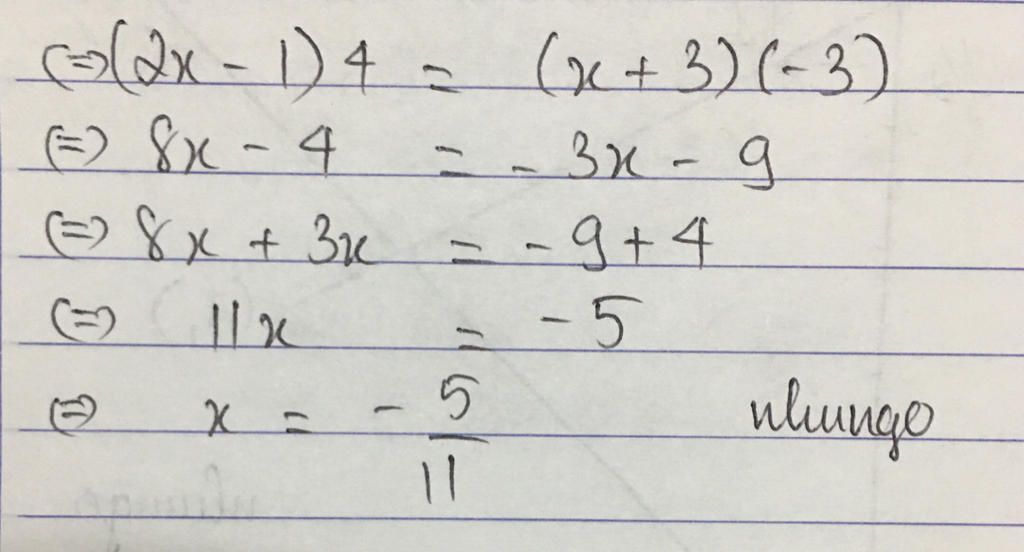 (=)(2x - 1)4 = (x + 3)(-3)
(=) 8x - 4 = - 3x - 9
(=) 8x + 3x = - 9 + 4
(=) 11x = - 5
(=) x = - 5/11 nhungo